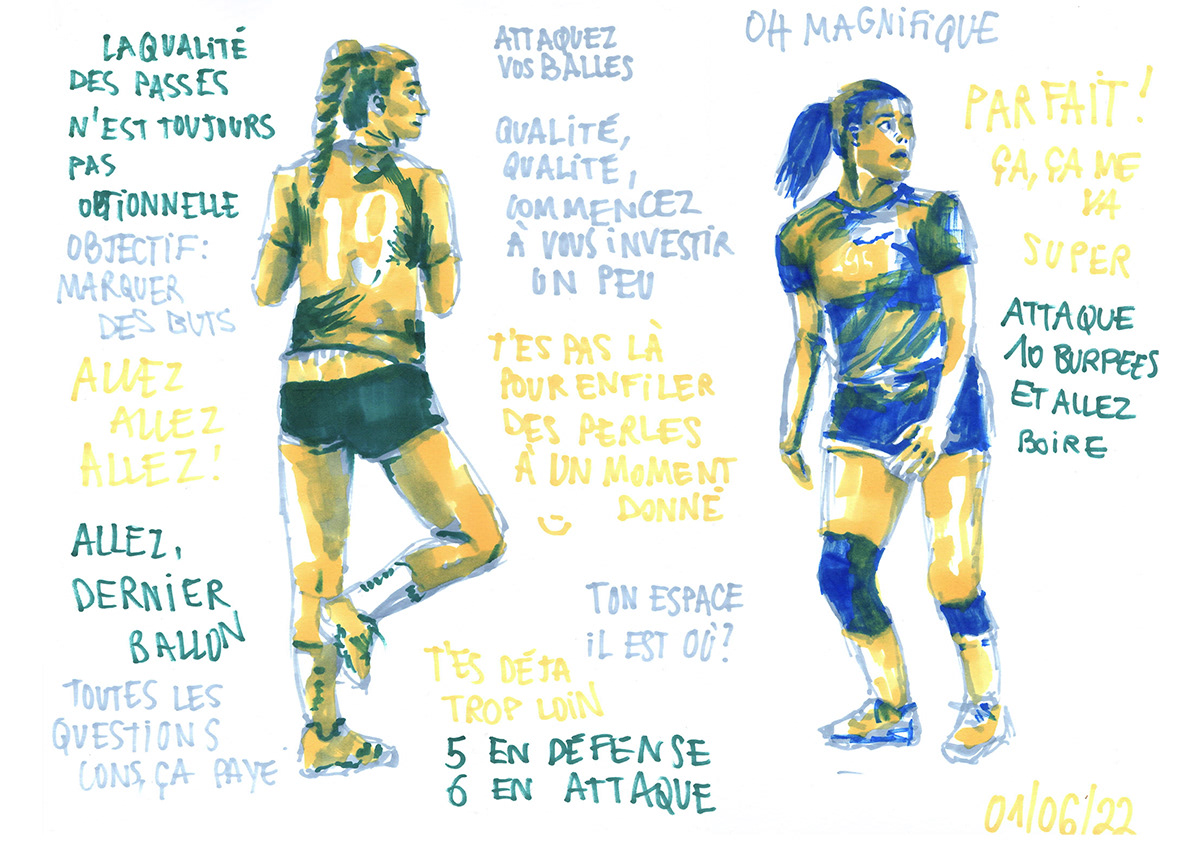 LA QUALITÉ
DES PASSES
N'EST TOUJOURS
PAS
OBTIONNELLE
OBJECTIF:
MARQUER
DES BUTS
ALLEZ
ALLEZ
ALLEZ!
ALLEZ,
DERNIER
BALLON
TOUTES LES
QUESTIONS
CONS, ÇA PAYE
19
ATTAQUEZ
VOS BALLES
QUALITÉ,
QUALITÉ,
COMMENCEZ
À VOUS INVESTIR
UN PEU
T'ES PAS LÀ
POUR ENFILER
DES PERLES
À UN MOMENT
DONNÉ
TON ESPACE
IL EST OÙ?
T'ES DÉJA
TROP LOIN
5 EN DÉFENSE
6 EN ATTAQUE
OH MAGNIFIQUE
PARFAIT!
ÇA, ÇA ME
VA
SUPER
ATTAQUE
10 BURPEES
ET ALLEZ
BOIRE
01/06/22